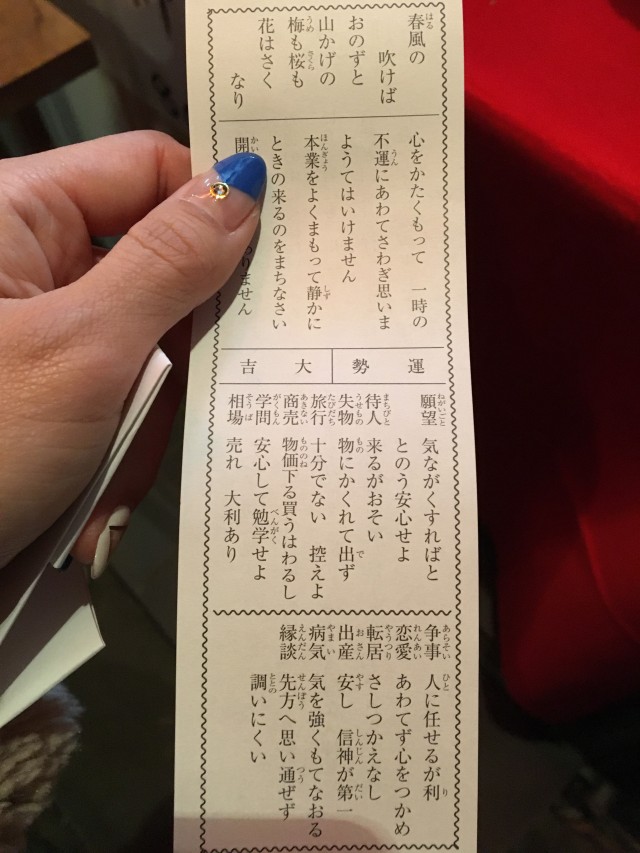 春風の
吹けば
おのずと
山かげの
梅も桜も
花はさく
なり
心をかたくもって 一時の
不運にあわてさわぎ思いま
ようてはいけません
本業をよくまもって静かに
ときの来るのをまちなさい
開 りません
運勢 大吉
願望 気ながくすればと
とのう安心せよ
待人 来るがおそい
失物 物にかくれて出ず
旅行 十分でない 控えよ
商売 物価下る買うはわるし
学問 安心して勉学せよ
相場 売れ 大利あり
争事 人に任せるが利
恋愛 あわてず心をつかめ
転居 さしつかえなし
出産 安し 信神が第一
病気 気を強くもてなおる
縁談 先方へ思い通ぜず
調いにくい